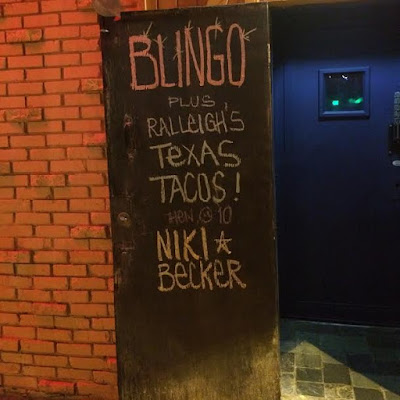 BLINGO
PLUS
RALLEIGH'S
TEXAS
TACOS!
THEN @ 10
NIKI
BECKER